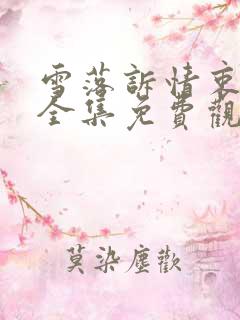 雪落訴情衷
全集免費觀
莫染塵歡